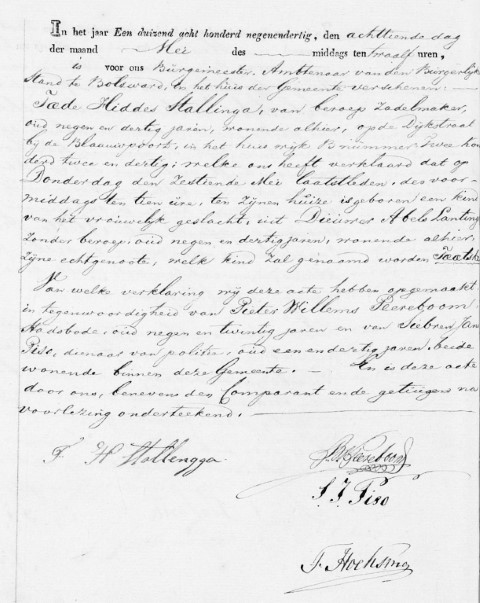 In het jaar Een duizend acht honderd negenendertig, den achttiende dag
der maand Mei des middags ten twaalf uren,
is voor ons Burgemeester, Ambtenaar van den Burgerlijke
Stand te Bolsward, in het huis der Gemeente verschenen:
Tæde Hiddes Stallinga, van beroep Zadelmaker,
oud negen en dertig jaren, wonende alhier, op de Dijkstraat
bij de Blaauwpoort, in het huis wijk B nummer twee hon
derd twee en dertig; welke ons heeft verklaard dat op
Donderdag den Zestiende Mei laatstleden, des voor-
middags ten tien ure, ten Zijnen huize is geboren een kind
van het vrouwelijk geslacht, uit Dieuwer Abels Lanting
Zonder beroep, oud negen en dertig jaren, wonende alhier,
Zijne echtgenoote, welk kind Zal genaamd worden
Van welke verklaring wij deze acte hebben opgemaakt
in tegenwoordigheid van Pieter Willems Peereboom
Stadsbode, oud negen en twintig jaren en van Seebren Jan
Piso, dienaar van politie, oud een en dertig jaren beide
wonende binnen deze Gemeente. En is deze acte
door ons, benevens den Comparant en de getuigen na
voorlezing onderteekend.
T. H Stallengga
Peereboom
S. J. Piso